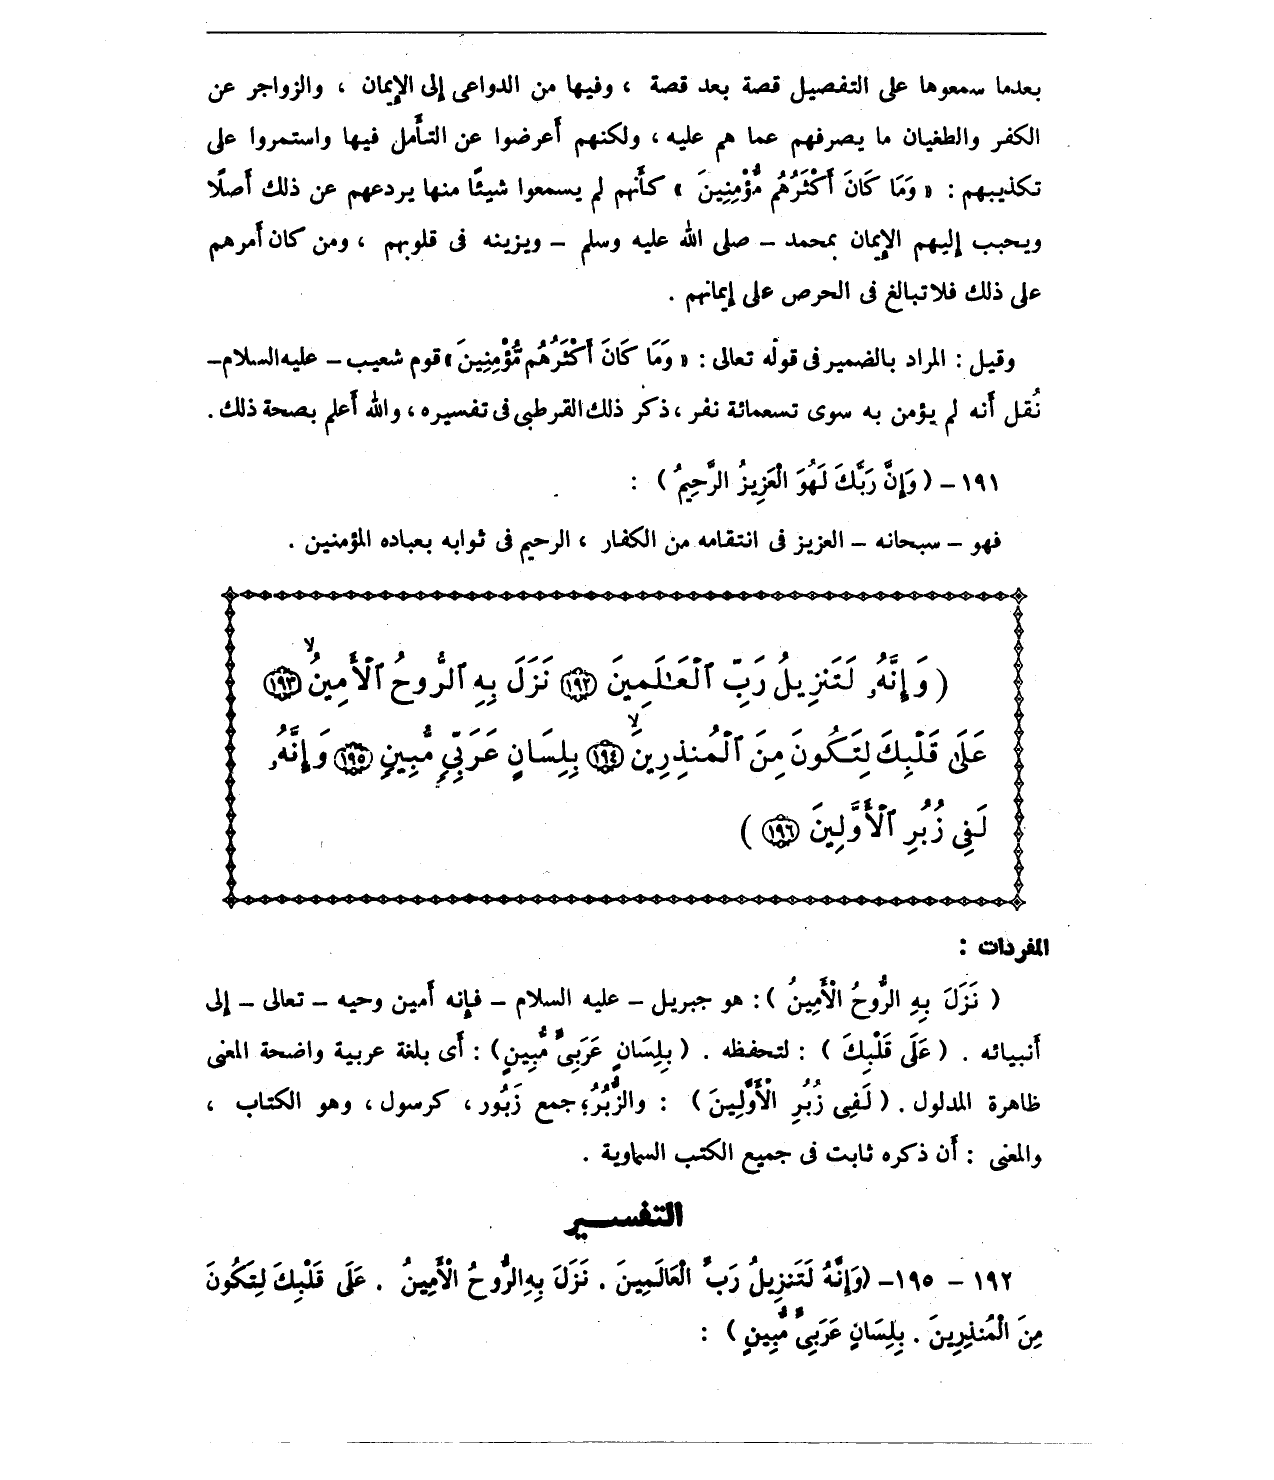 بعدما سمعوها على التفصيل قصة بعد قصة ، وفيها من الدواعى إلى الإيمان ، والزواجر عن
الكفر والطغيان ما يصرفهم عما هم عليه ، ولكنهم أعرضوا عن التأمل فيها واستمروا على
تكذيبهم : « وَمَا كَانَ أَكْثَرُهُم مُّؤْمِنِينَ » كأنهم لم يسمعوا شيئًا منها يردعهم عن ذلك أصلًا
ويحبب إليهم الإيمان بمحمد – صلى الله عليه وسلم – ويزينه فى قلوبهم ، ومن كان أمرهم
على ذلك فلا تبالغ فى الحرص على إيمانهم .
وقيل : المراد بالضمير فى قوله تعالى : « وَمَا كَانَ أَكْثَرُهُم مُّؤْمِنِينَ » قوم شعيب – عليه السلام –
نُقل أنه لم يؤمن به سوى تسعمائة نفر ، ذكر ذلك القرطبى فى تفسيره ، والله أعلم بصحة ذلك .
١٩١ – ( وَإِنَّ رَبَّكَ لَهُوَ الْعَزِيزُ الرَّحِيمُ ) :
فهو – سبحانه – العزيز فى انتقامه من الكفار ، الرحيم فى ثوابه بعباده المؤمنين .
( وَإِنَّهُۥ لَتَنزِيلُ رَبِّ ٱلْعَـٰلَمِينَ ١٩٢ نَزَلَ بِهِ ٱلرُّوحُ ٱلْأَمِينُ ۙ ١٩٣
عَلَىٰ قَلْبِكَ لِتَكُونَ مِنَ ٱلْمُنذِرِينَ ۙ ١٩٤ بِلِسَانٍ عَرَبِىٍّ مُّبِينٍ ١٩٥ وَإِنَّهُۥ
لَفِى زُبُرِ ٱلْأَوَّلِينَ ١٩٦ )
المفردات :
( نَزَلَ بِهِ الرُّوحُ الْأَمِينُ ) : هو جبريل – عليه السلام – فإنه أمين وحيه – تعالى – إلى
أنبيائه . ( عَلَى قَلْبِكَ ) : لتحفظه . ( بِلِسَانٍ عَرَبِىٍّ مُّبِينٍ ) : أى بلغة عربية واضحة المعنى
ظاهرة المدلول . ( لَفِى زُبُرِ الْأَوَّلِينَ ) : والزُّبُرُ ؛ جمع زَبُور ، كرسول ، وهو الكتاب ،
والمعنى : أن ذكره ثابت فى جميع الكتب السماوية .
التفســـير
١٩٢ – ١٩٥ – ( وَإِنَّهُ لَتَنزِيلُ رَبِّ الْعَالَمِينَ . نَزَلَ بِهِ الرُّوحُ الْأَمِينُ . عَلَى قَلْبِكَ لِتَكُونَ
مِنَ الْمُنذِرِينَ . بِلِسَانٍ عَرَبِىٍّ مُّبِينٍ ) :